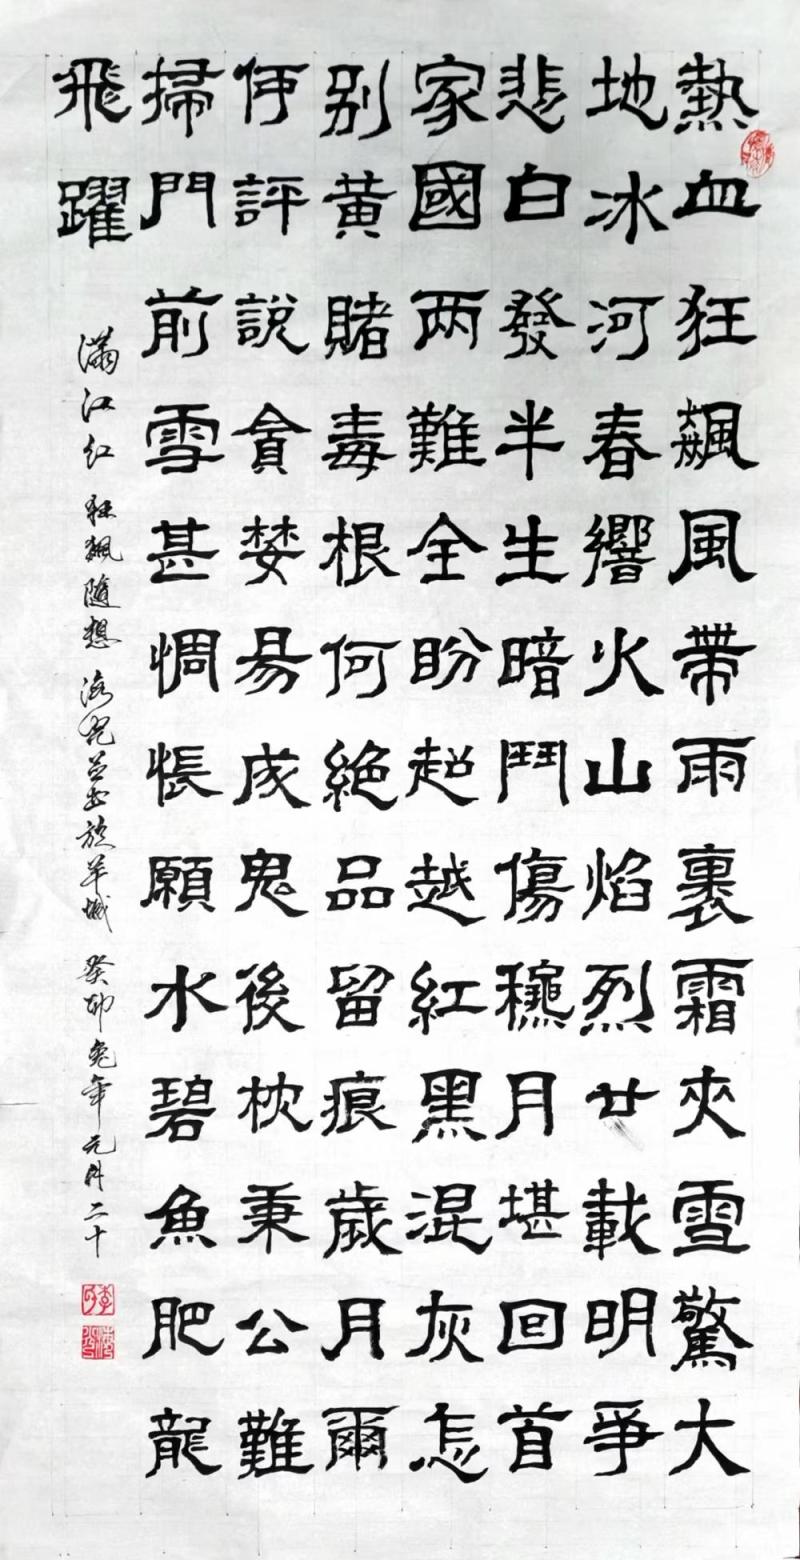 熱血狂飆風帶雨裹霜夾雪驚大
地冰河春響火山焰烈廿載明爭
悲白發半生暗鬥傷穐月堪回首
家國两難全盼超越紅黑混灰怎
别黄賭毒根何絕品留痕歲月爾
伊評說貪婪易成鬼後枕秉公難
掃門前雪甚惆悵願水碧魚肥龍
飛躍
滿江红 狂飙隨想 於羊城 癸卯兔年元月二十